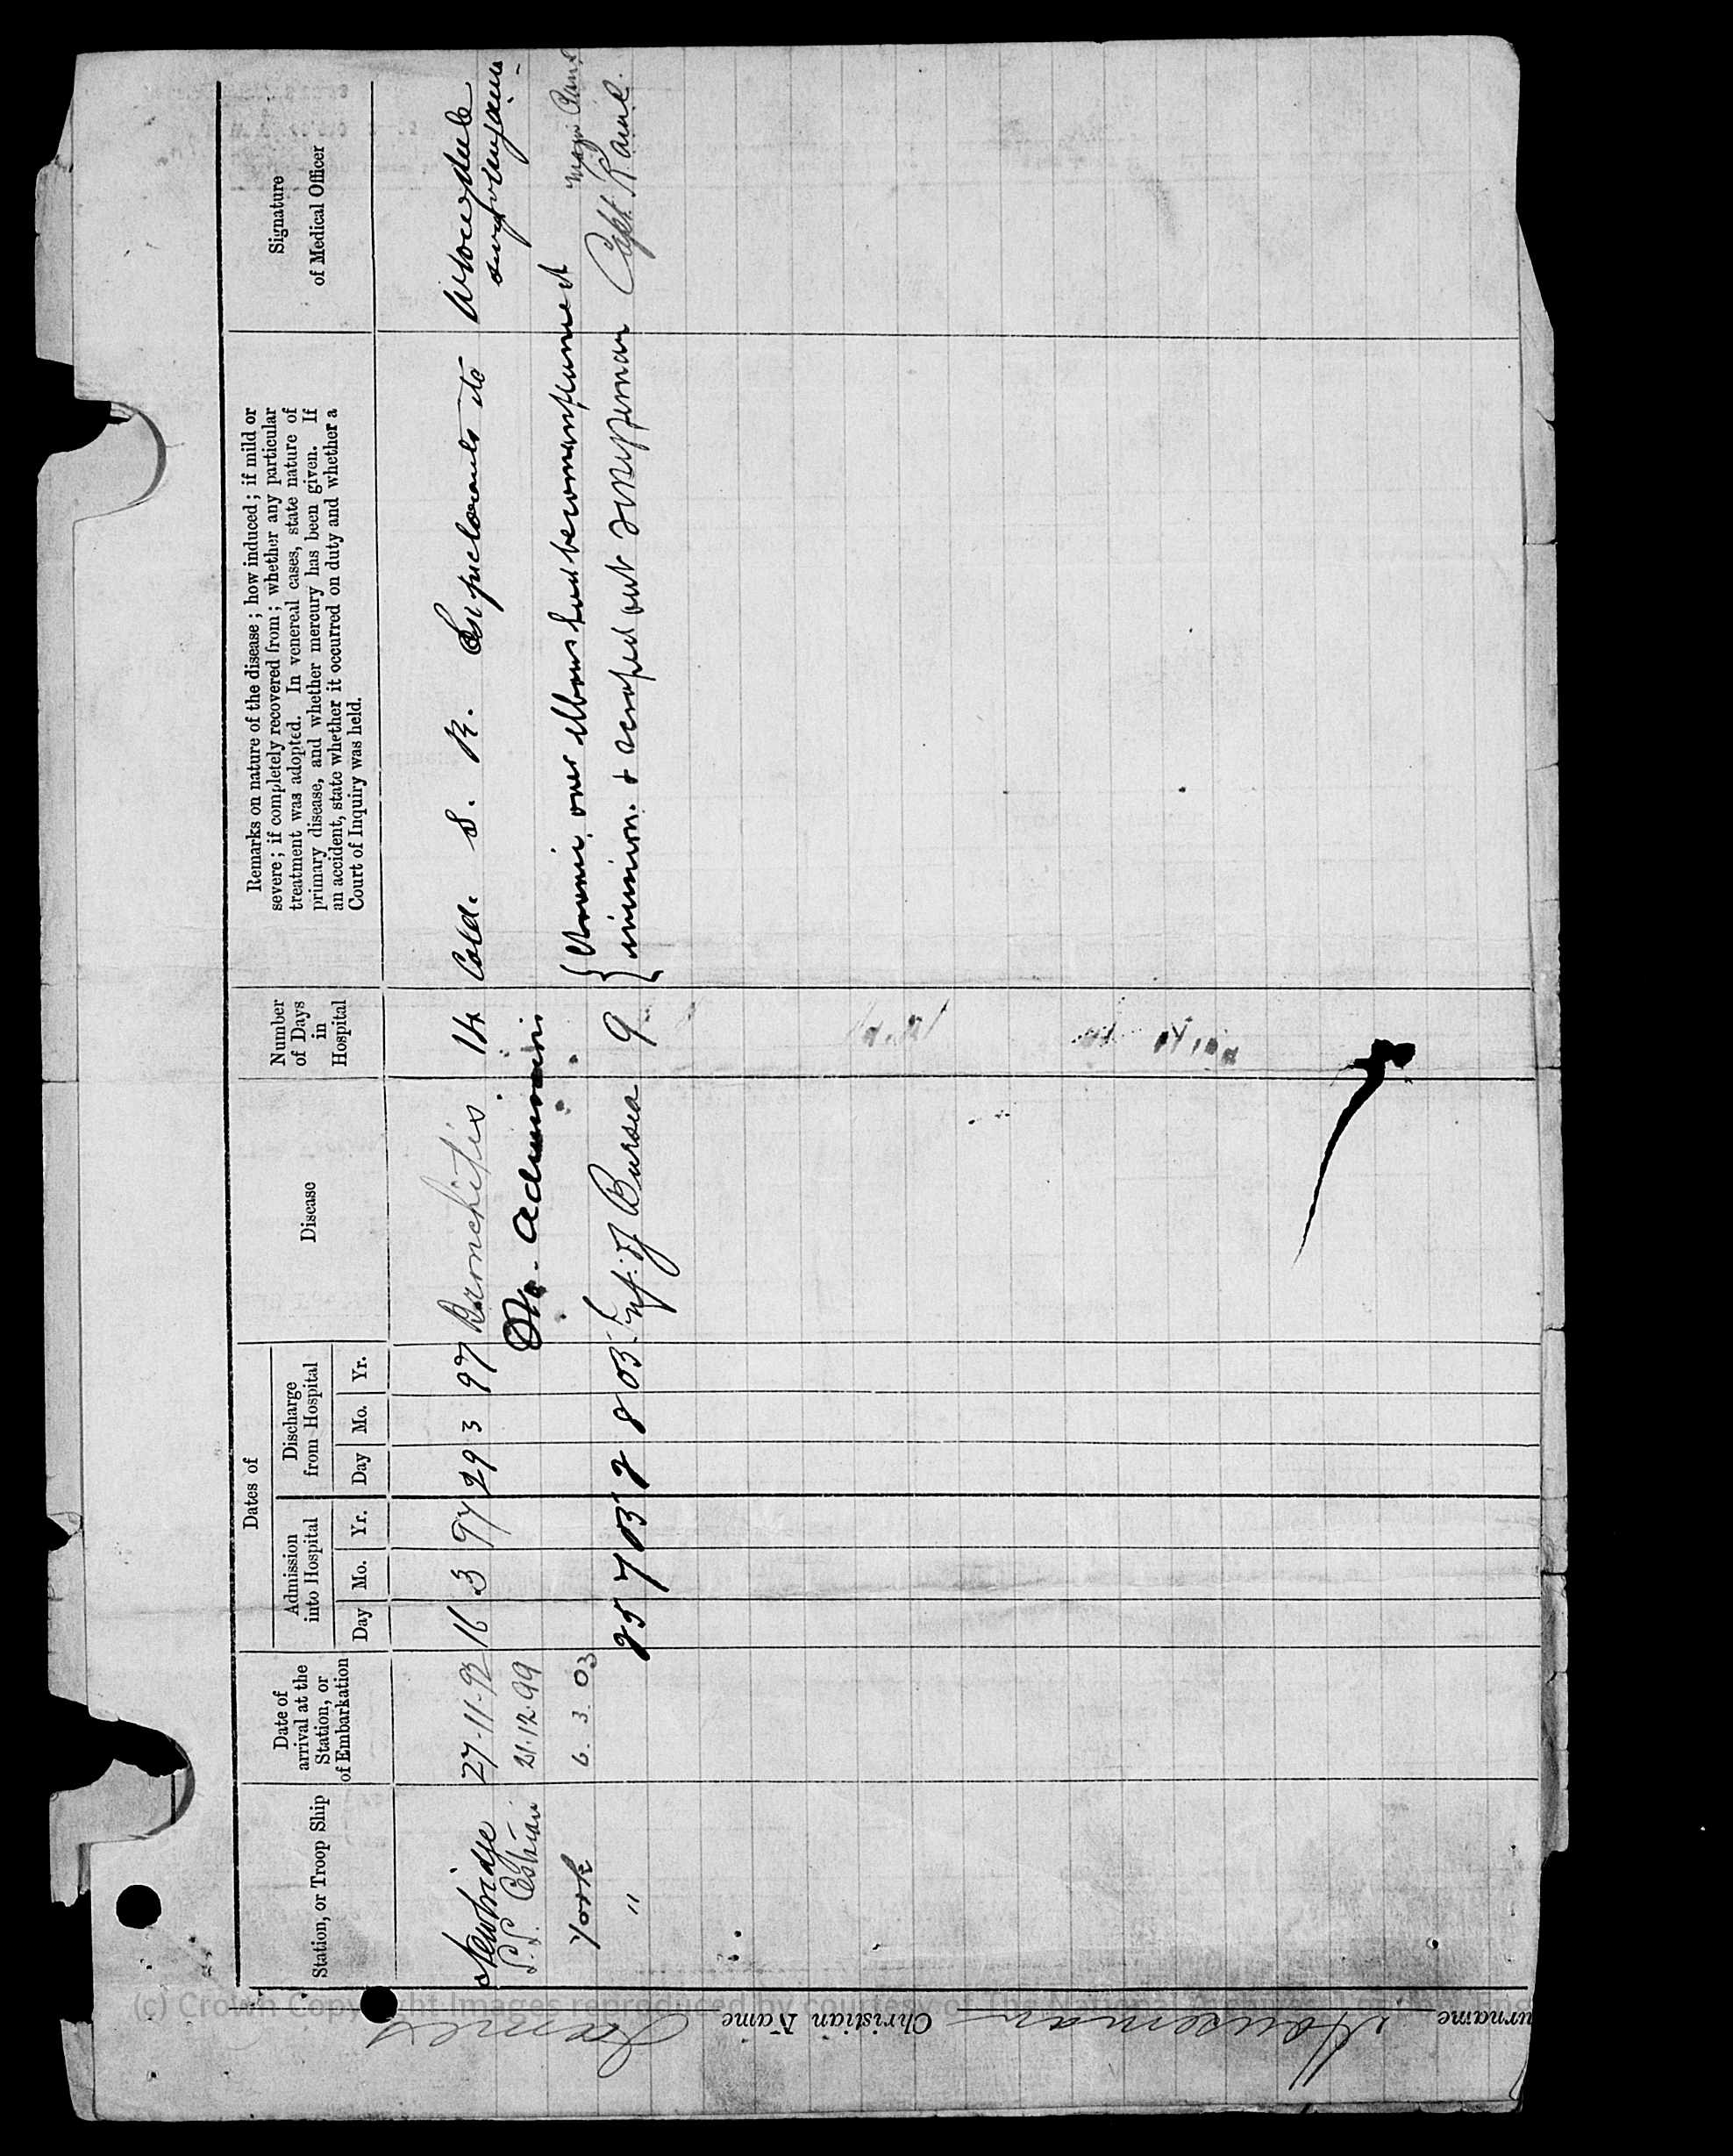 Station, or Troop Ship
Date of
arrival at the
Station, or
of Embarkation
Dates of
Admission
into Hospital
Discharge
from Hospital
Day Mo. Yr. Day Mo. Yr.
Disease
Number
of Days
in
Hospital
Remarks on nature of the disease; how induced; if mild or
severe; if completely recovered from; whether any particular
treatment was adopted. In venereal cases, state nature of
primary disease, and whether mercury has been given. If
an accident, state whether it occurred on duty and whether a
Court of Inquiry was held.
Signature
of Medical Officer
Newbridge 27-11-93 16 3 97 29 3 97 Bronchitis 14 Cold. S. R.
S.S. Cestrian 21.12.99 admissions
York 6. 3. 03 over elbows had become inflamed
" 25 7 03 2 8 03 Inf: of Bursa 9 incision. & scraped out Capt. R.a.m.c.
(c) Crown Copyright Images reproduced by courtesy of The National
urname Houseman Christian Name James